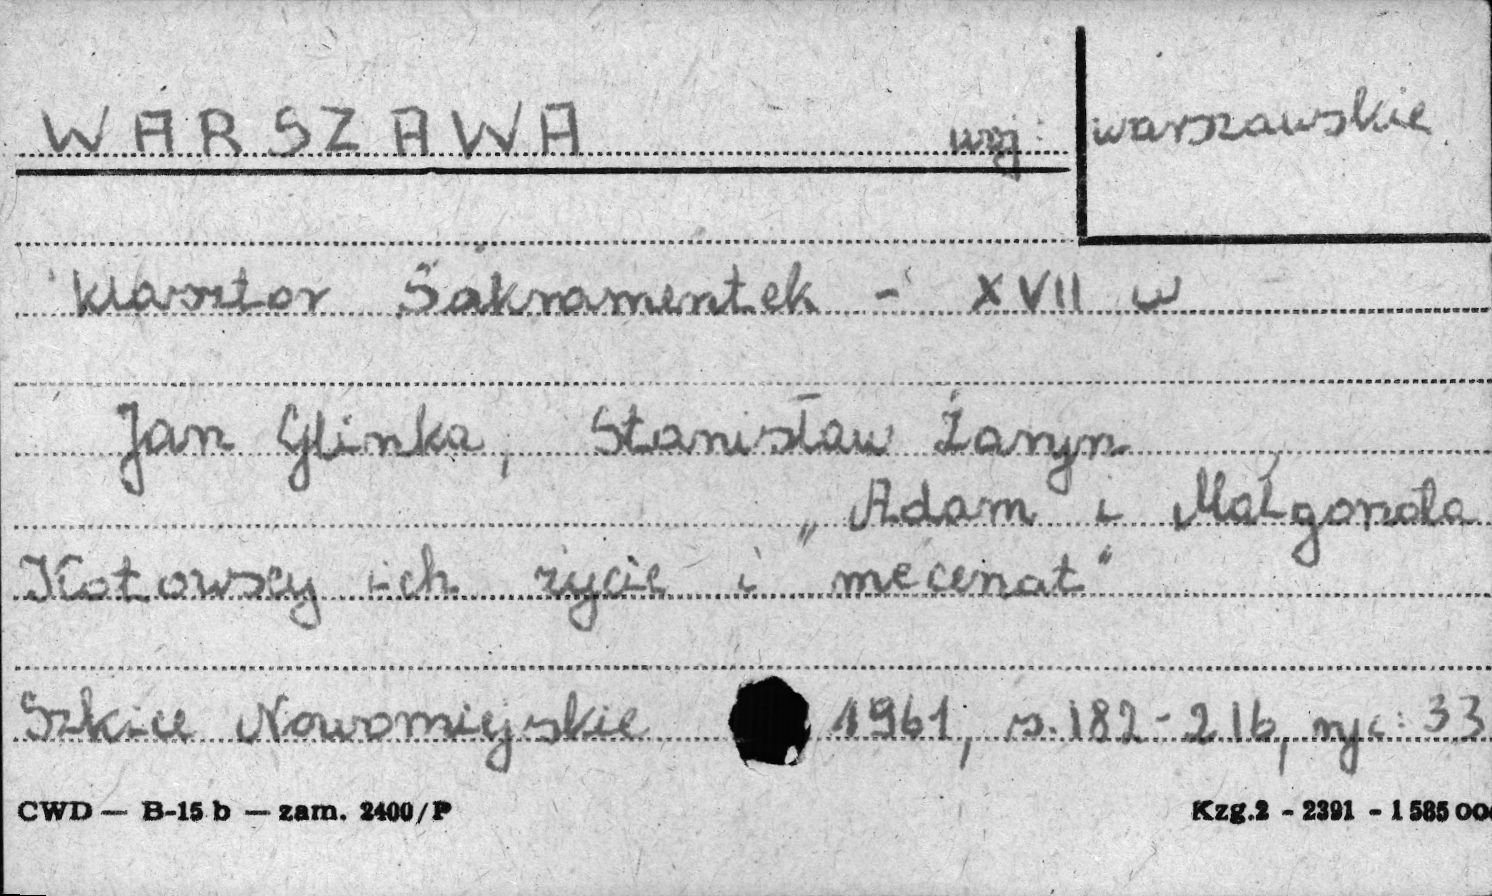 WARSZAWA woj: warszawskie
klasztor Sakramentek - XVII w
Jan Glinka, Stanisław Żaryn
„Adam i Małgorzata
Kotowscy ich życie i mecenat"
Szkice Nowomiejskie 1961, s. 182-216, ryc: 33
CWD — B-15 b — zam. 2400/P Kzg.2 - 2391 - 1 585 000